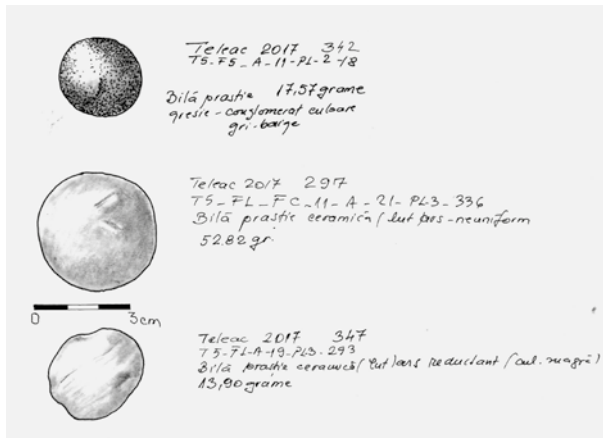 Teleac 2017 342
T5-F5_A-11-PL-2-18
Bilă praștie 17,57grame
gresie - conglomerat culoare
gri-baige
Teleac 2017 297
T5_FL_FC_11_A_21-PL3_336
Bilă praștie ceramică (lut ars-neuniform
52.82 gr.
0 3cm
Teleac 2017 347
T5-FL-A-19-PL3-293
Bilă praștie ceramică (lut) ars reductant (cul. neagră)
13,90 grame